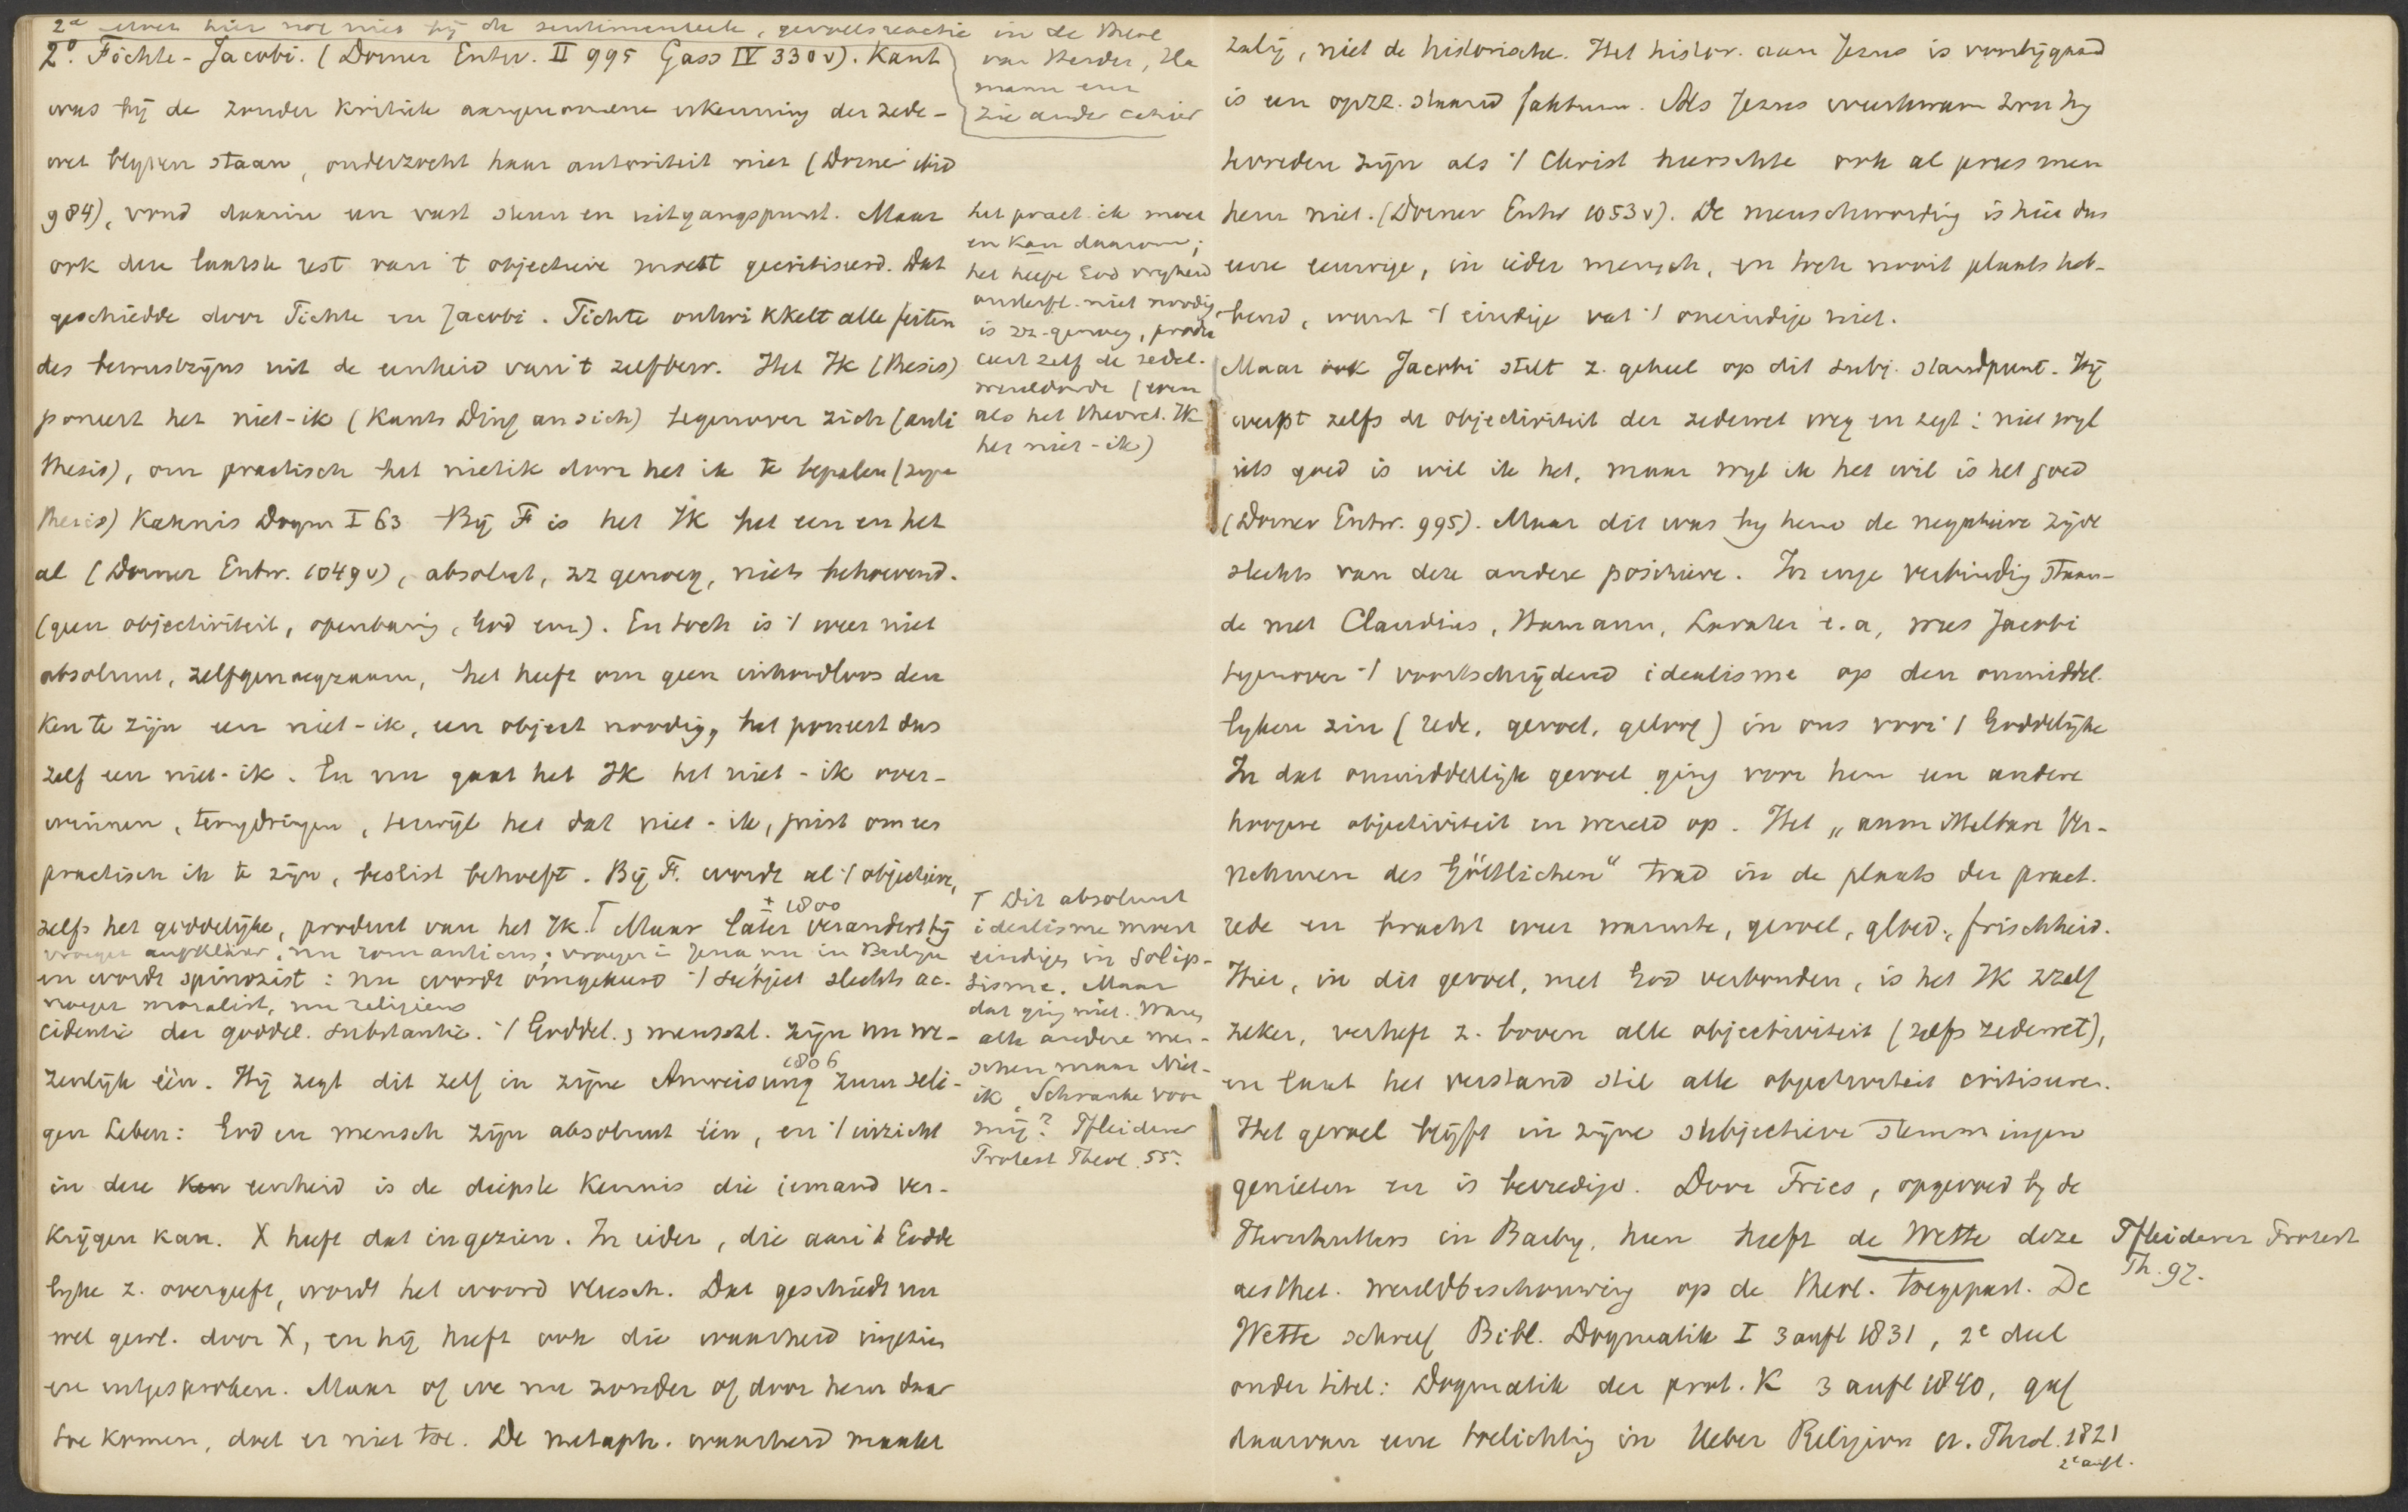 2e even hier nog niet bij de sentimenteele, gevoelsreactie in de theol
van Herder, Ha
mann enz
zie ander cahier
2o. Fichte - Jacobi. (Dorner Entw. II 995 Gass IV 330v). Kant
was bij de zonder kritiek aangenomene erkenning der zede-
wet blijven staan, onderzocht haar autoriteit niet (Dorner ibid
984), vond daarin een vast steun en uitgangspunt. Maar
ook deze laatste rest van 't objectieve moest gecritiseerd. Dat
geschiedde door Fichte en Jacobi. Fichte ontwikkelt alle feiten
des bewustzijns uit de eenheid van 't zelfbew. Het Ik (thesis)
poneert het niet-ik (Kants Ding an sich) tegenover zich (anti
thesis), om practisch het nietik door het ik te bepalen (syn
thesis) Kahnis Dogm I 63 Bij F is het Ik het een en het
al (Dorner Entw. 1049v), absoluut, zz genoeg, niets behoevend.
(geen objectiviteit, openbaring, God enz). En toch is 't weer niet
absoluut, zelfgenoegzaam, het heeft om geen inhoudloos den
ken te zijn een niet-ik, een object noodig, het poneert dus
zelf een niet-ik. En nu gaat het Ik het niet-ik over-
winnen, terugdringen, terwijl het dat niet-ik, juist om een
practisch ik te zijn, beslist behoeft. Bij F. wordt al 't objectieve,
zelfs het goddelijke, product van het Ik. T Maar later ± 1800 verandert hij
vroeger aufklärer, nu romanticus; vroeger in Jena nu in Berlijn
en wordt spinozist: nu wordt omgekeerd 't subject slechts ac-
vroeger moralist, nu religieus
cidentie der goddel. substantie. 't Goddel. & menschl. zijn nu we-
zenlijk één. Hij zegt dit zelf in zijne Anweisung 1806 zum seli-
gen Leben: God en mensch zijn absoluut één, en 't inzicht
in deze eenheid is de diepste kennis die iemand ver-
krijgen kan. X heeft dat ingezien. In ieder, die aan 't Godde
lijke z. overgeeft, wordt het woord vleesch. Dat geschiedt nu
wel gew. door X, en hij heeft ook die waarheid ingezien
en uitgesproken. Maar of we nu zonder of door hem daar
toe komen, doet er niet toe. De metaph. waarheid maakt
het pract. ik moet
en kan daarom;
het heeft God vrijheid
onsterfl. niet noodig
is zz-genoeg, produ
ceert zelf de zedel.
wereldorde (even
als het theoret. Ik
het niet-ik)
T Dit absoluut
idealisme moest
eindigen in Solip-
sisme. Maar
dat ging niet. Waren
alle andere men-
schen maar Niet-
ik, Schranke voor
mij? Pfleiderer
Protest Theol. 55.
zalig, niet de historische. Het histor. aan Jezus is voorbijgaand
is een opzz. staand faktum. Als Jezus weerkwam zou hij
tevreden zijn als 't Christ heerschte ook al prees men
hem niet. (Dorner Entw 1053v). De menschwording is hier dus
eene eeuwige, in ieder mensch, en toch nooit plaats heb-
bend, want 't eindige vat 't oneindige niet.
Maar ook Jacobi stelt z. geheel op dit subj. standpunt. Hij
werpt zelfs de objectiviteit der zedewet weg en zegt: niet wijl
iets goed is wil ik het, maar wijl ik het wil is het goed
(Dorner Entw. 995). Maar dit was bij hem de negatieve zijde
slechts van deze andere positieve. In enge verbinding staan-
de met Claudius, Hamann, Lavater e.a, wees Jacobi
tegenover 't voortschrijdend idealisme op den onmiddel.
lijken zin (rede, gevoel, geloof) in ons voor 't Goddelijke
In dat onmiddellijk gevoel ging voor hem een andere
hoogere objectiviteit en wereld op. Het „unmittelbare Ver-
nehmen des Göttlichen" trad in de plaats der pract.
rede en bracht weer warmte, gevoel, gloed, frischheid.
Hier, in dit gevoel, met God verbonden, is het Ik zzelf
zeker, verheft z. boven alle objectiviteit (zelfs zedewet),
en laat het verstand stil alle objectiviteit critiseren.
Het gevoel blijft in zijne subjectieve stemmingen
genieten en is bevredigd. Door Fries, opgevoed bij de
Hernhutters in Barby, heen heeft de Wette deze
aesthet. wereldbeschouwing op de theol. toegepast. De
Wette schreef Bibl. Dogmatik I 3 aufl 1831, 2e deel
onder titel: Dogmatik der prot. K 3 aufl 1840, gaf
daarvan eene toelichting in Ueber Religion u. Theol. 1821
2e aufl.
Pfleiderer Protest
Th. 97.